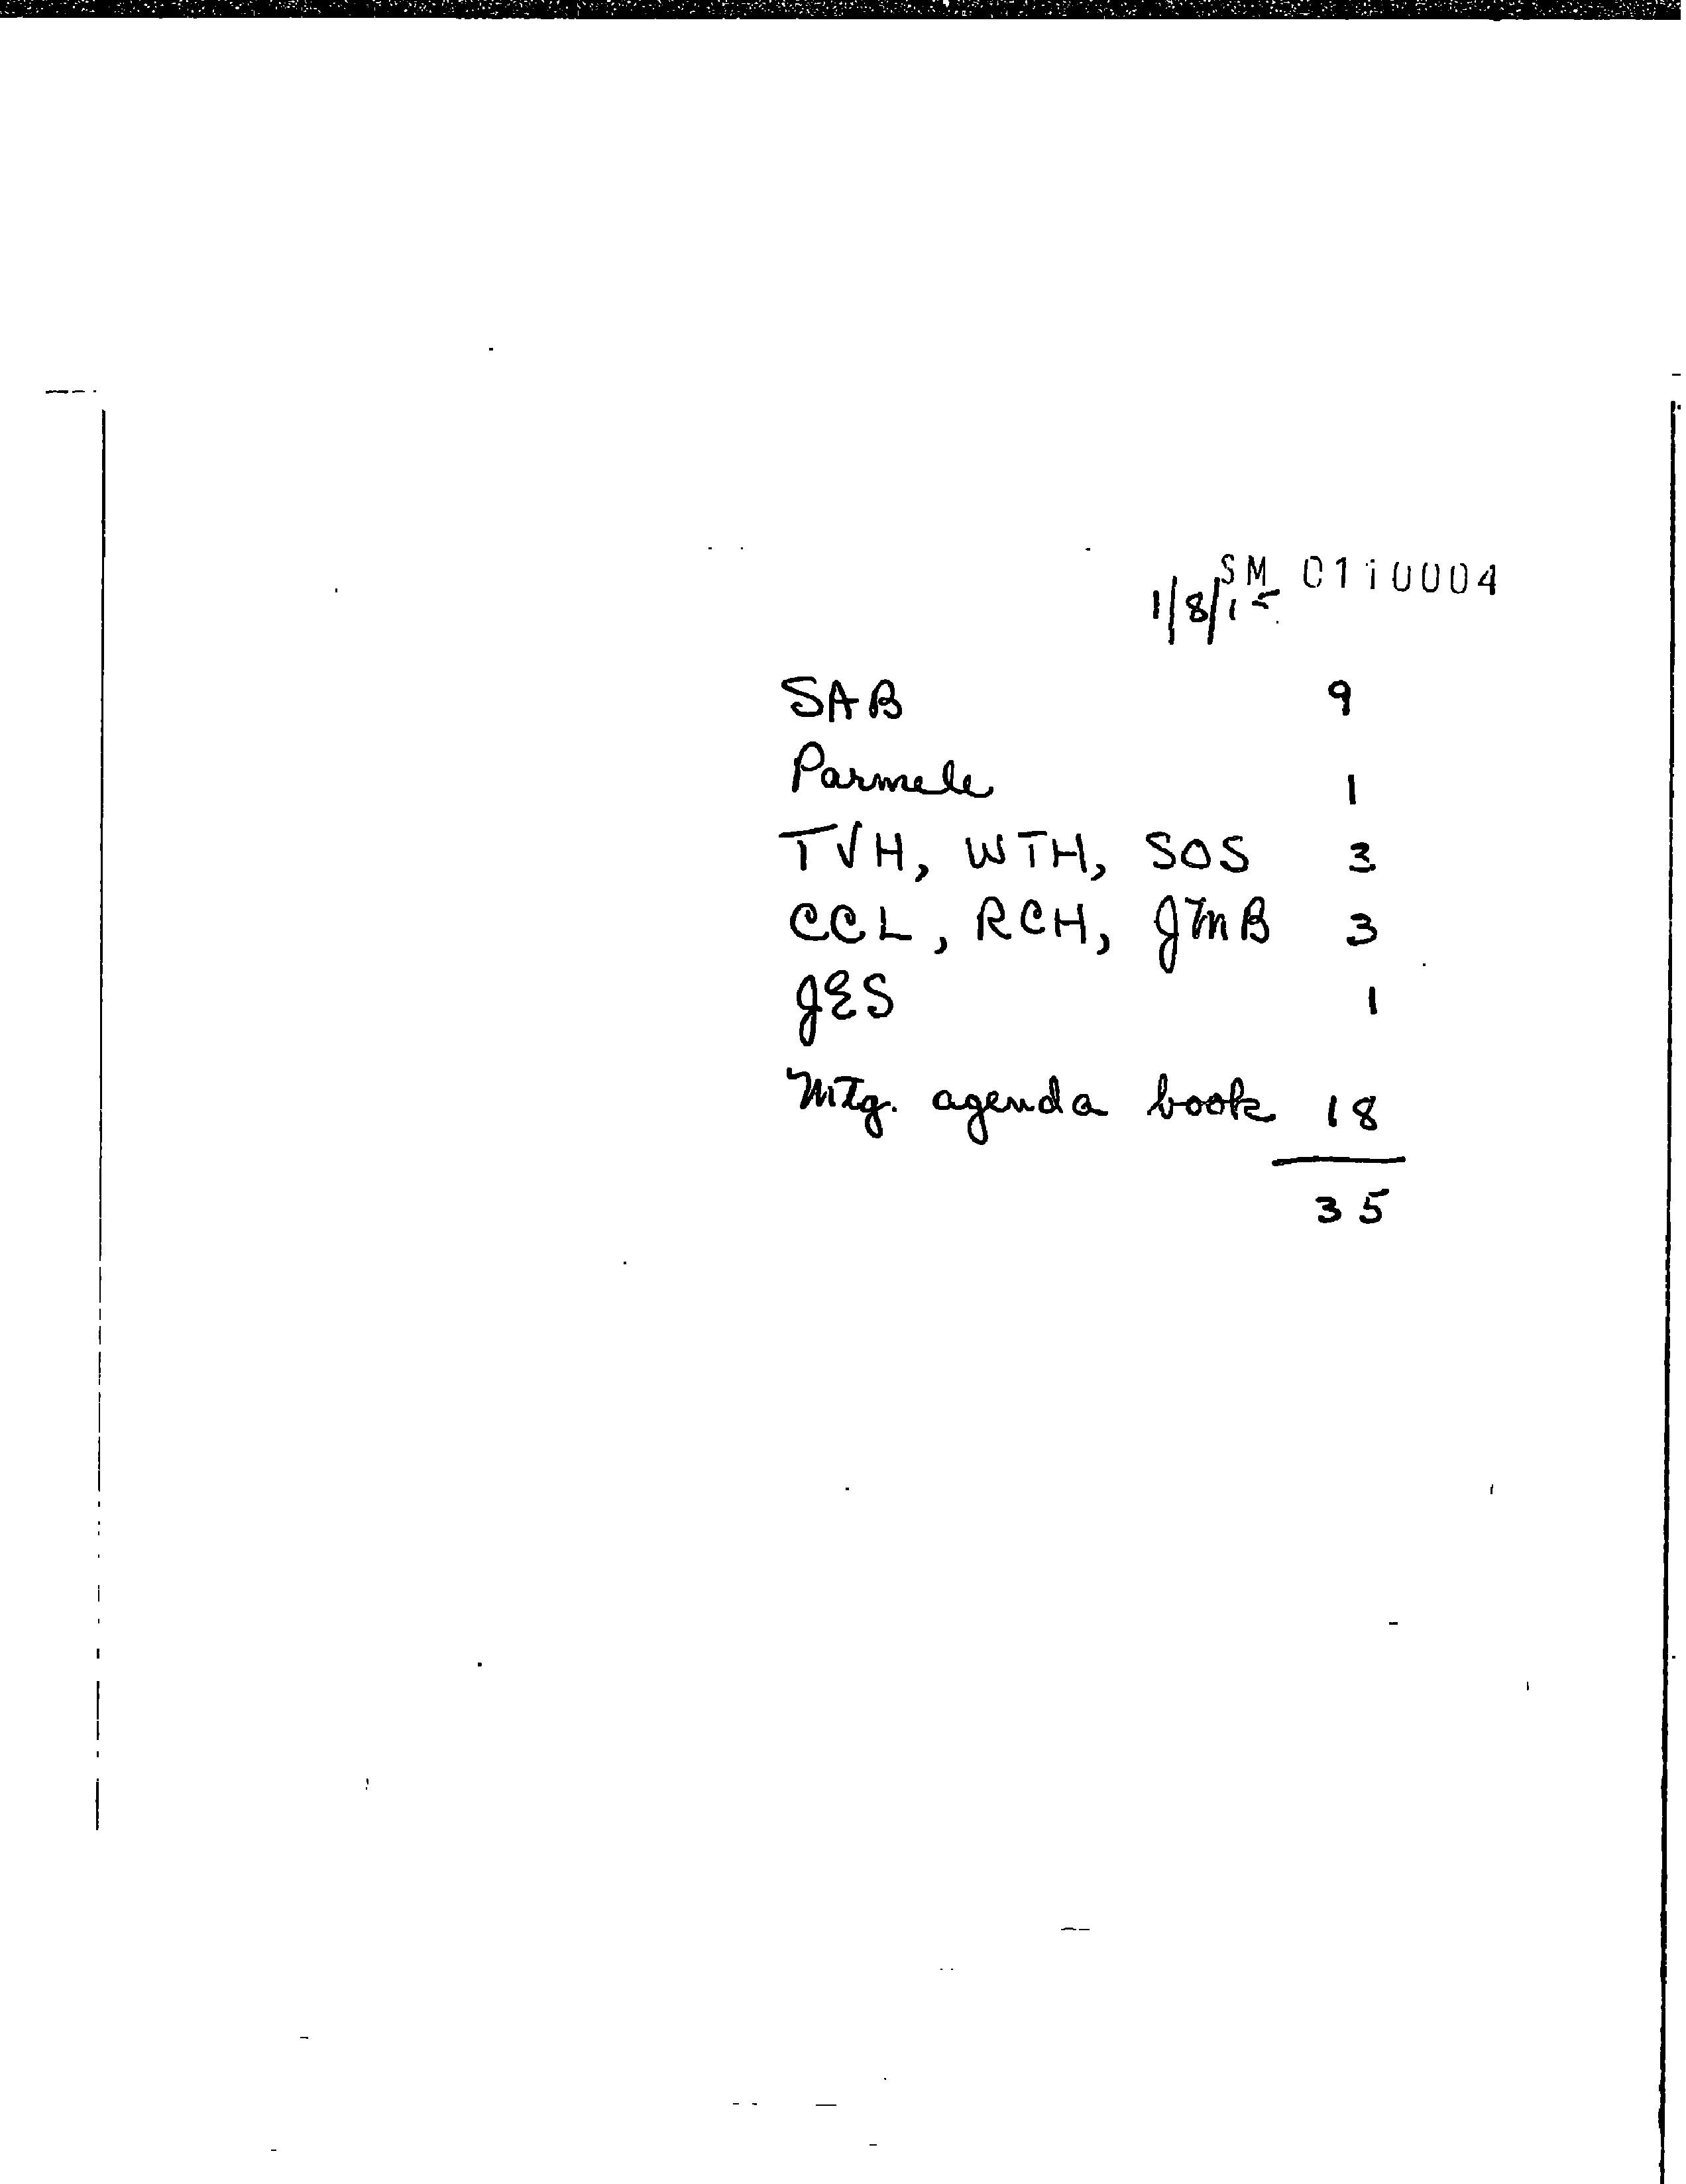 SM 0110004
1/8/15
SAB 9
Parmele 1
TVH, WTH, SOS 3
CCL, RCH, JMB 3
JES 1
Mtg. agenda book 18
35